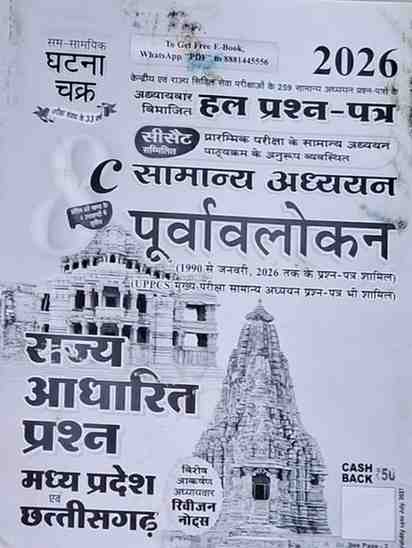 सम-सामयिक
घटना
चक्र
To Get Free E-Book,
WhatsApp "PDF" to 8881445556
2026
केन्द्रीय एवं राज्य सिविल सेवा परीक्षाओं के 259 सामान्य अध्ययन प्रश्न-पत्रों के
अध्यायवार
विभाजित
हल प्रश्न-पत्र
सीसैट
सम्मिलित
प्रारम्भिक परीक्षा के सामान्य अध्ययन
पाठ्यक्रम के अनुरूप व्यवस्थित
8c
सामान्य अध्ययन
पूर्वावलोकन
(1990 से जनवरी, 2026 तक के प्रश्न-पत्र शामिल)
(UPPCS मुख्य परीक्षा सामान्य अध्ययन प्रश्न-पत्र भी शामिल)
राज्य
आधारित
प्रश्न
मध्य प्रदेश
एवं
छत्तीसगढ़
विशेष
आकर्षण
अध्यायवार
रिवीजन
नोट्स
CASH
BACK ₹50
See Page - 2